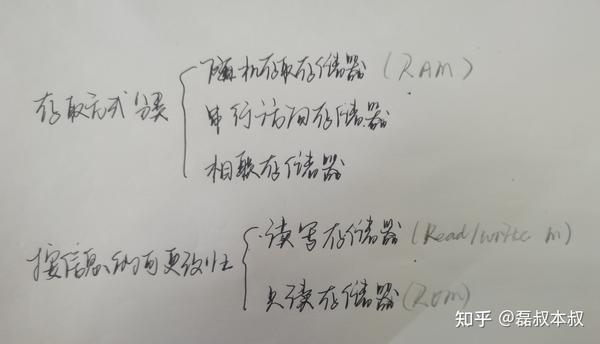 随机存取存储器(RAM)
存取方式分类
串行访问存储器
相联存储器
读写存储器(Read/write m)
按信息的可更改性
只读存储器(Rom)
知乎 @磊叔本叔